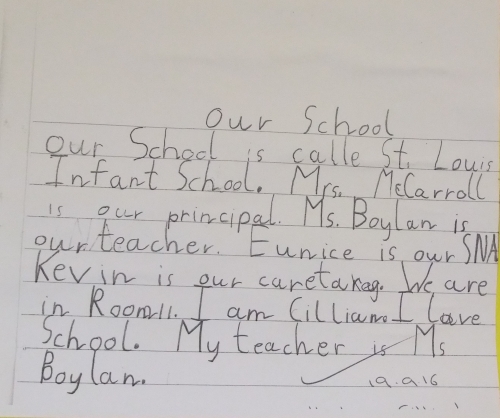 Our School
our School is calle St. Louis
Infant School. Mrs. McCarroll
is our principal. Ms. Boylan is
our teacher. Eunice is our SNA
Kevin is our caretakeg. We are
in Room11. I am Cillian. I love
School. My teacher is Ms
Boylan.
19.9.16